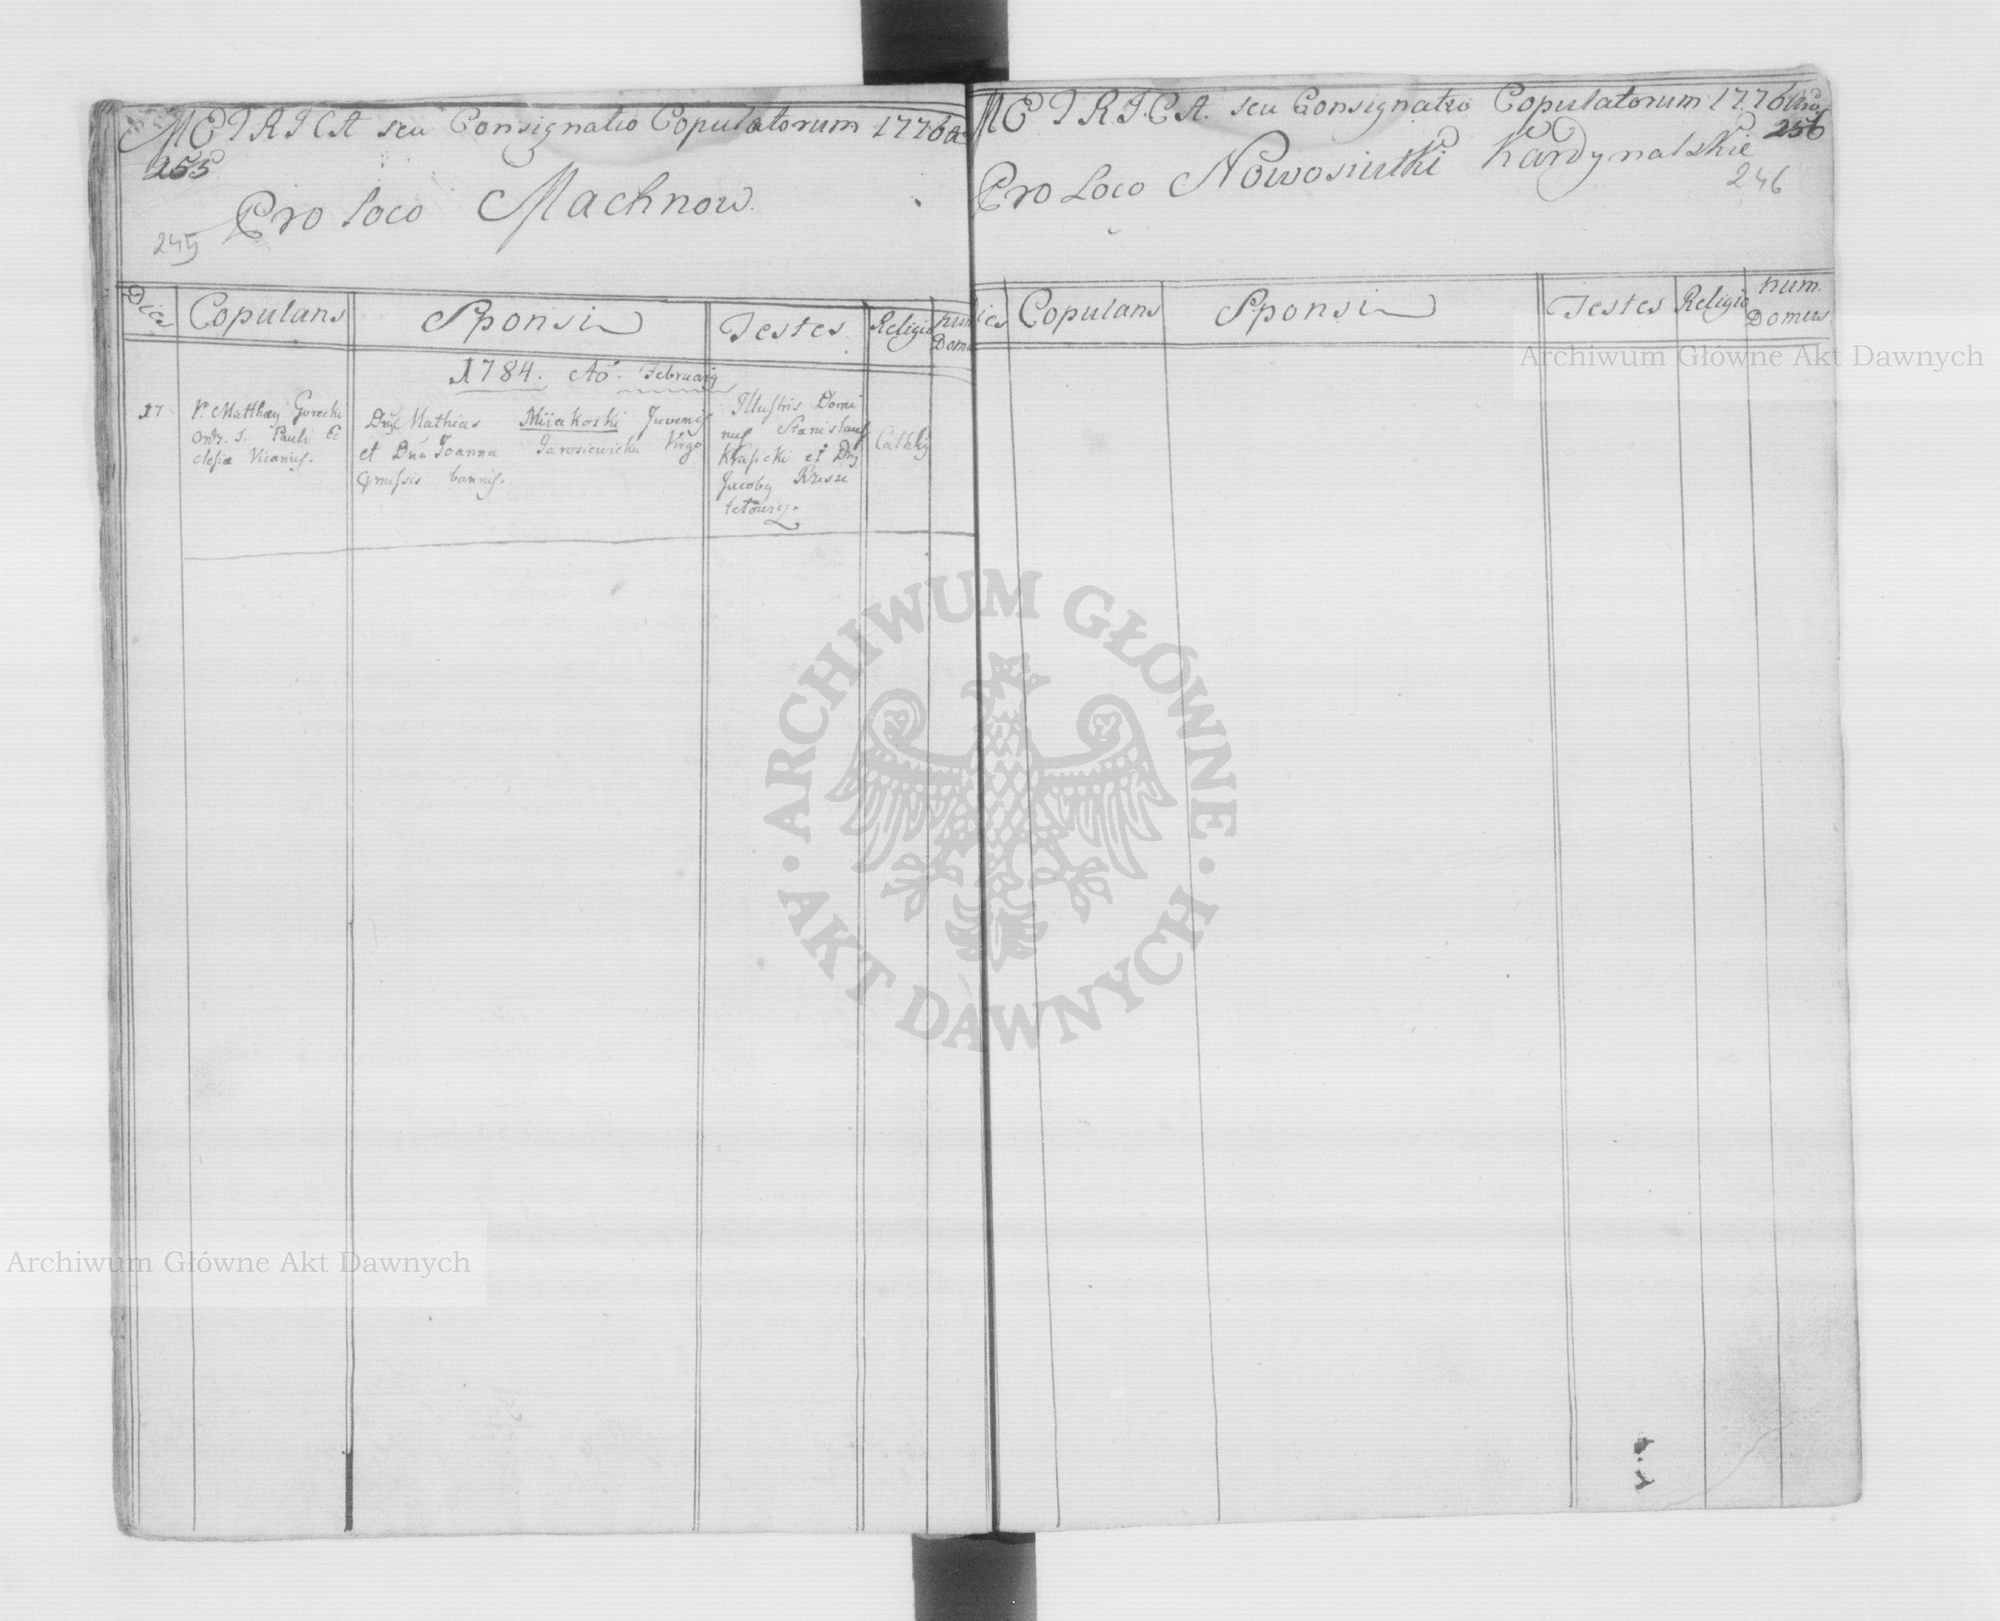 METRICA seu Consignatio Copulatorum 1776
255
Pro loco Machnow.
245
Dies Copulans Sponsi Testes Religio num Domus
1784. Aō. Februarij
17
P. Matthæy Gorecki
Ord. S. Pauli Ec
clesiæ Vicarius.
Dns Mathias Mijakoski Juvenis
et Dna Joanna Jarosiewicka Virgo
pmissis bannis.
Illustris Domi
nus Stanislaus
Krasicki et Dns
Jacobg Rzesze
totowicz.
Cathlig
METRICA. seu Consignatio Copulatorum 1776
256
Pro Loco Nowosiułki Kardynalskie
246
Dies Copulans Sponsi Testes Religio num. Domus
Archiwum Główne Akt Dawnych
ARCHIWUM GŁÓWNE · AKT DAWNYCH ·
Archiwum Główne Akt Dawnych